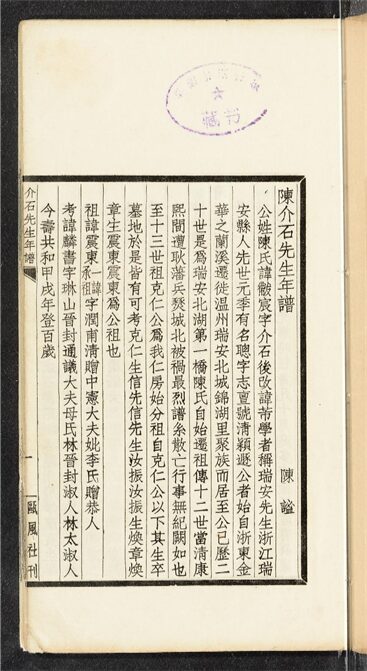 陳介石先生年譜
陳謐
公姓陳氏諱黻宸字介石後改諱芾學者稱瑞安先生浙江瑞
安縣人先世元季有名聰字志亶號清穎遯公者始自浙東金
華之蘭溪遷徙溫州瑞安北城錦湖里聚族而居至公已歷二
十世是爲瑞安北湖第一橋陳氏自始遷祖傳十二世當清康
熙間遭耿藩兵燹城北被禍最烈譜系散亡行事無紀闕如也
至十三世祖克仁公爲我仁房始分祖自克仁公以下其生卒
墓地於是皆有可考克仁生信先信先生汝振汝振生煥章煥
章生震東震東爲公祖也
祖諱震東承祖一諱字潤甫清贈中憲大夫妣李氏贈恭人
考諱麟書字琳山晉封通議大夫母氏林晉封淑人林太淑人
今壽共和甲戌年登百歲
介石先生年譜
一
甌風社刊
藏書